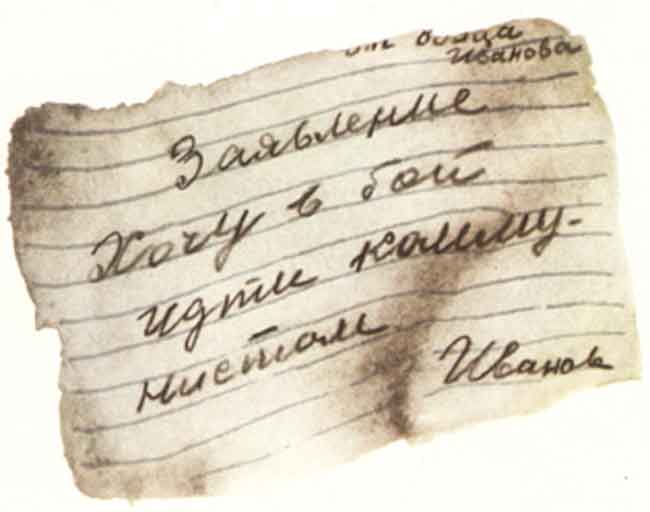 от бойца
Иванова
Заявление
Хочу в бой
идти комму-
нистом
Иванов